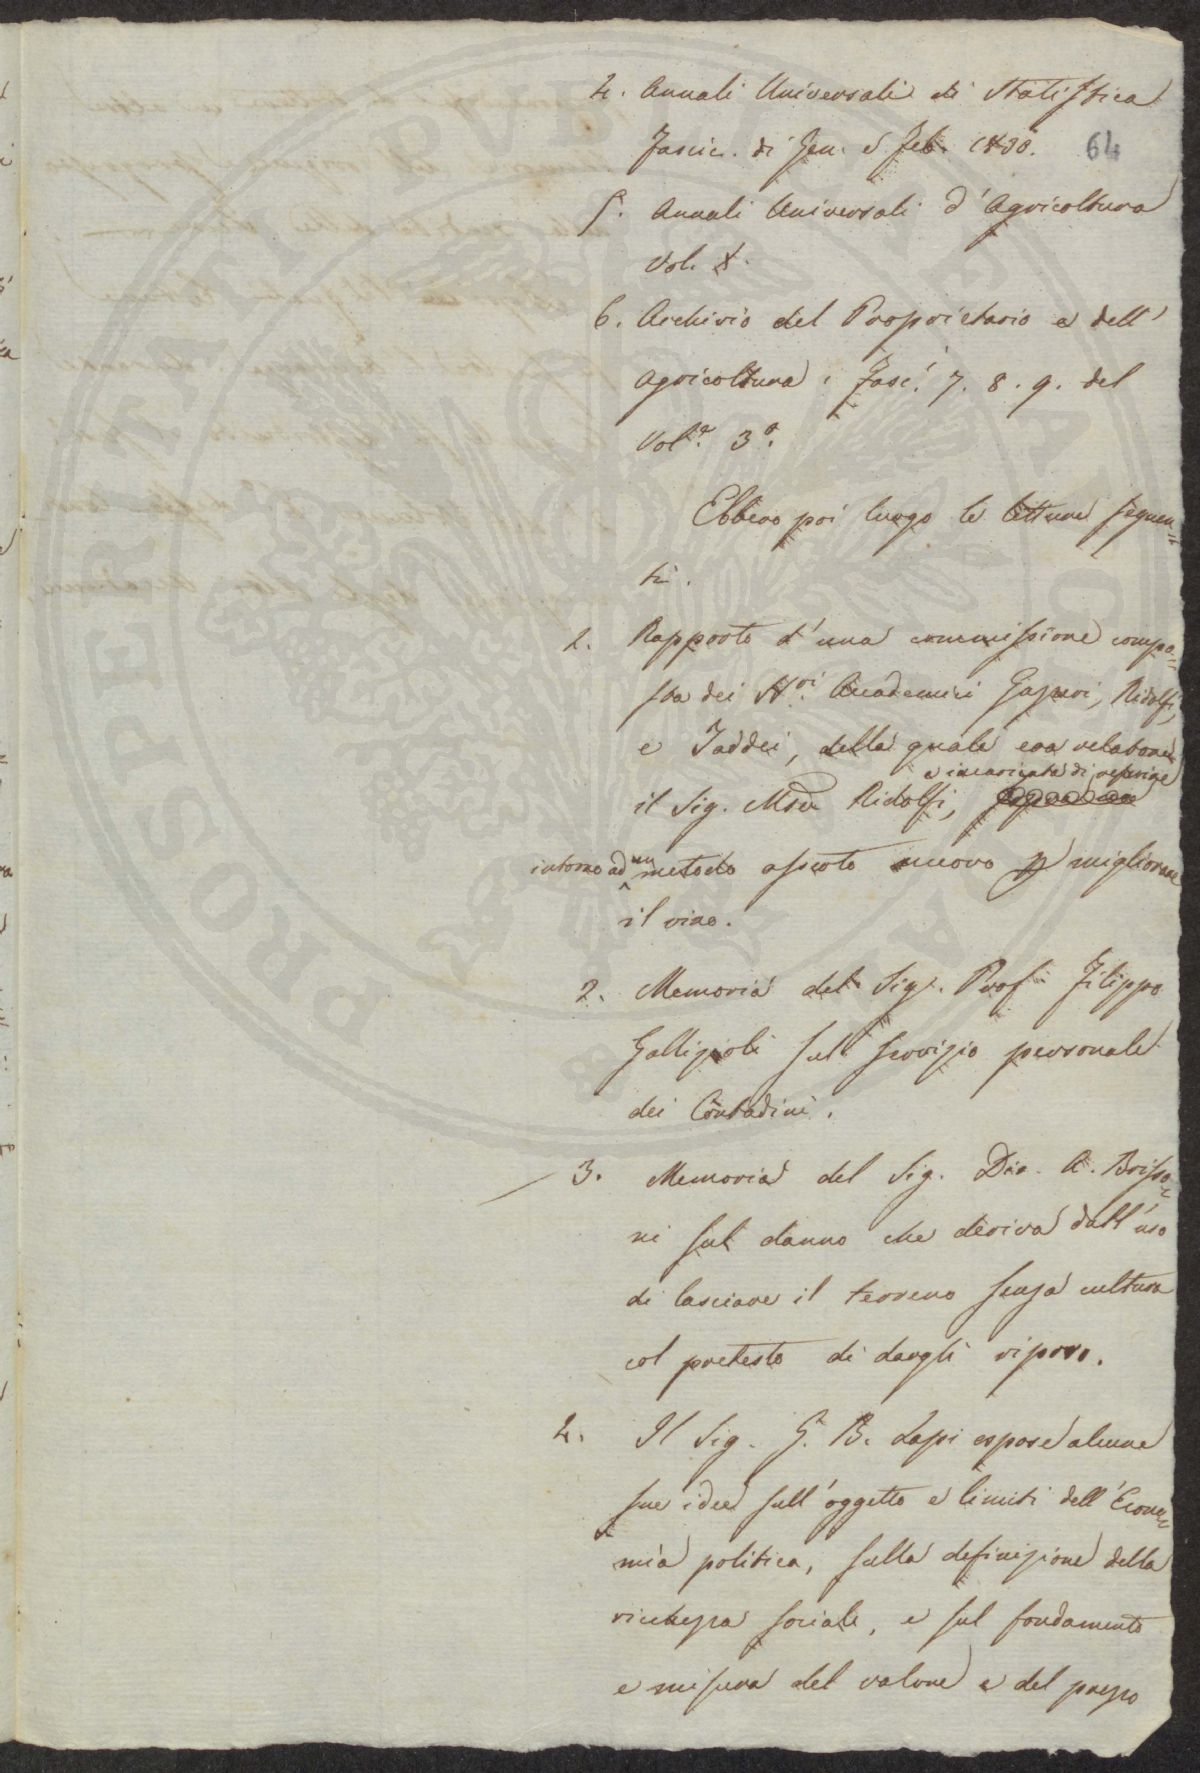 4. Annali Universali di Statistica
Fascic. di Gen. e Feb. 1830.
64
5. Annali Universali d'Agricoltura
Vol. X.
6. Archivio del Proprietario e dell'
Agricoltura: Fasc.i 7. 8. 9. del
Vol.e 3o.
Ebbero poi luogo le letture seguen=
ti.
1. Rapporto d'una commissione compo=
sta dei SS.ri Accademici Gazzeri, Ridolfi,
e Taddei, della quale era relatore
e incaricata di referire
il Sig. Mse. Ridolfi,
intorno ad un metodo asserto nuovo p migliorare
il vino.
2. Memoria del Sig. Prof. Filippo
Gallizioli sul servizio personale
dei Contadini.
3. Memoria del Sig. Dio. A. Brizzo=
ni sul danno che deriva dall'uso
di lasciare il terreno senza cultura
col pretesto di dargli riposo.
4. Il Sig. G. B. Lapi espose alcune
sue idee sull'oggetto e limiti dell'Econo=
mia politica, sulla definizione della
ricchezza sociale, e sul fondamento
e misura del valore e del prezzo
PROSPERITATI PUBLICAE AUGENDAE